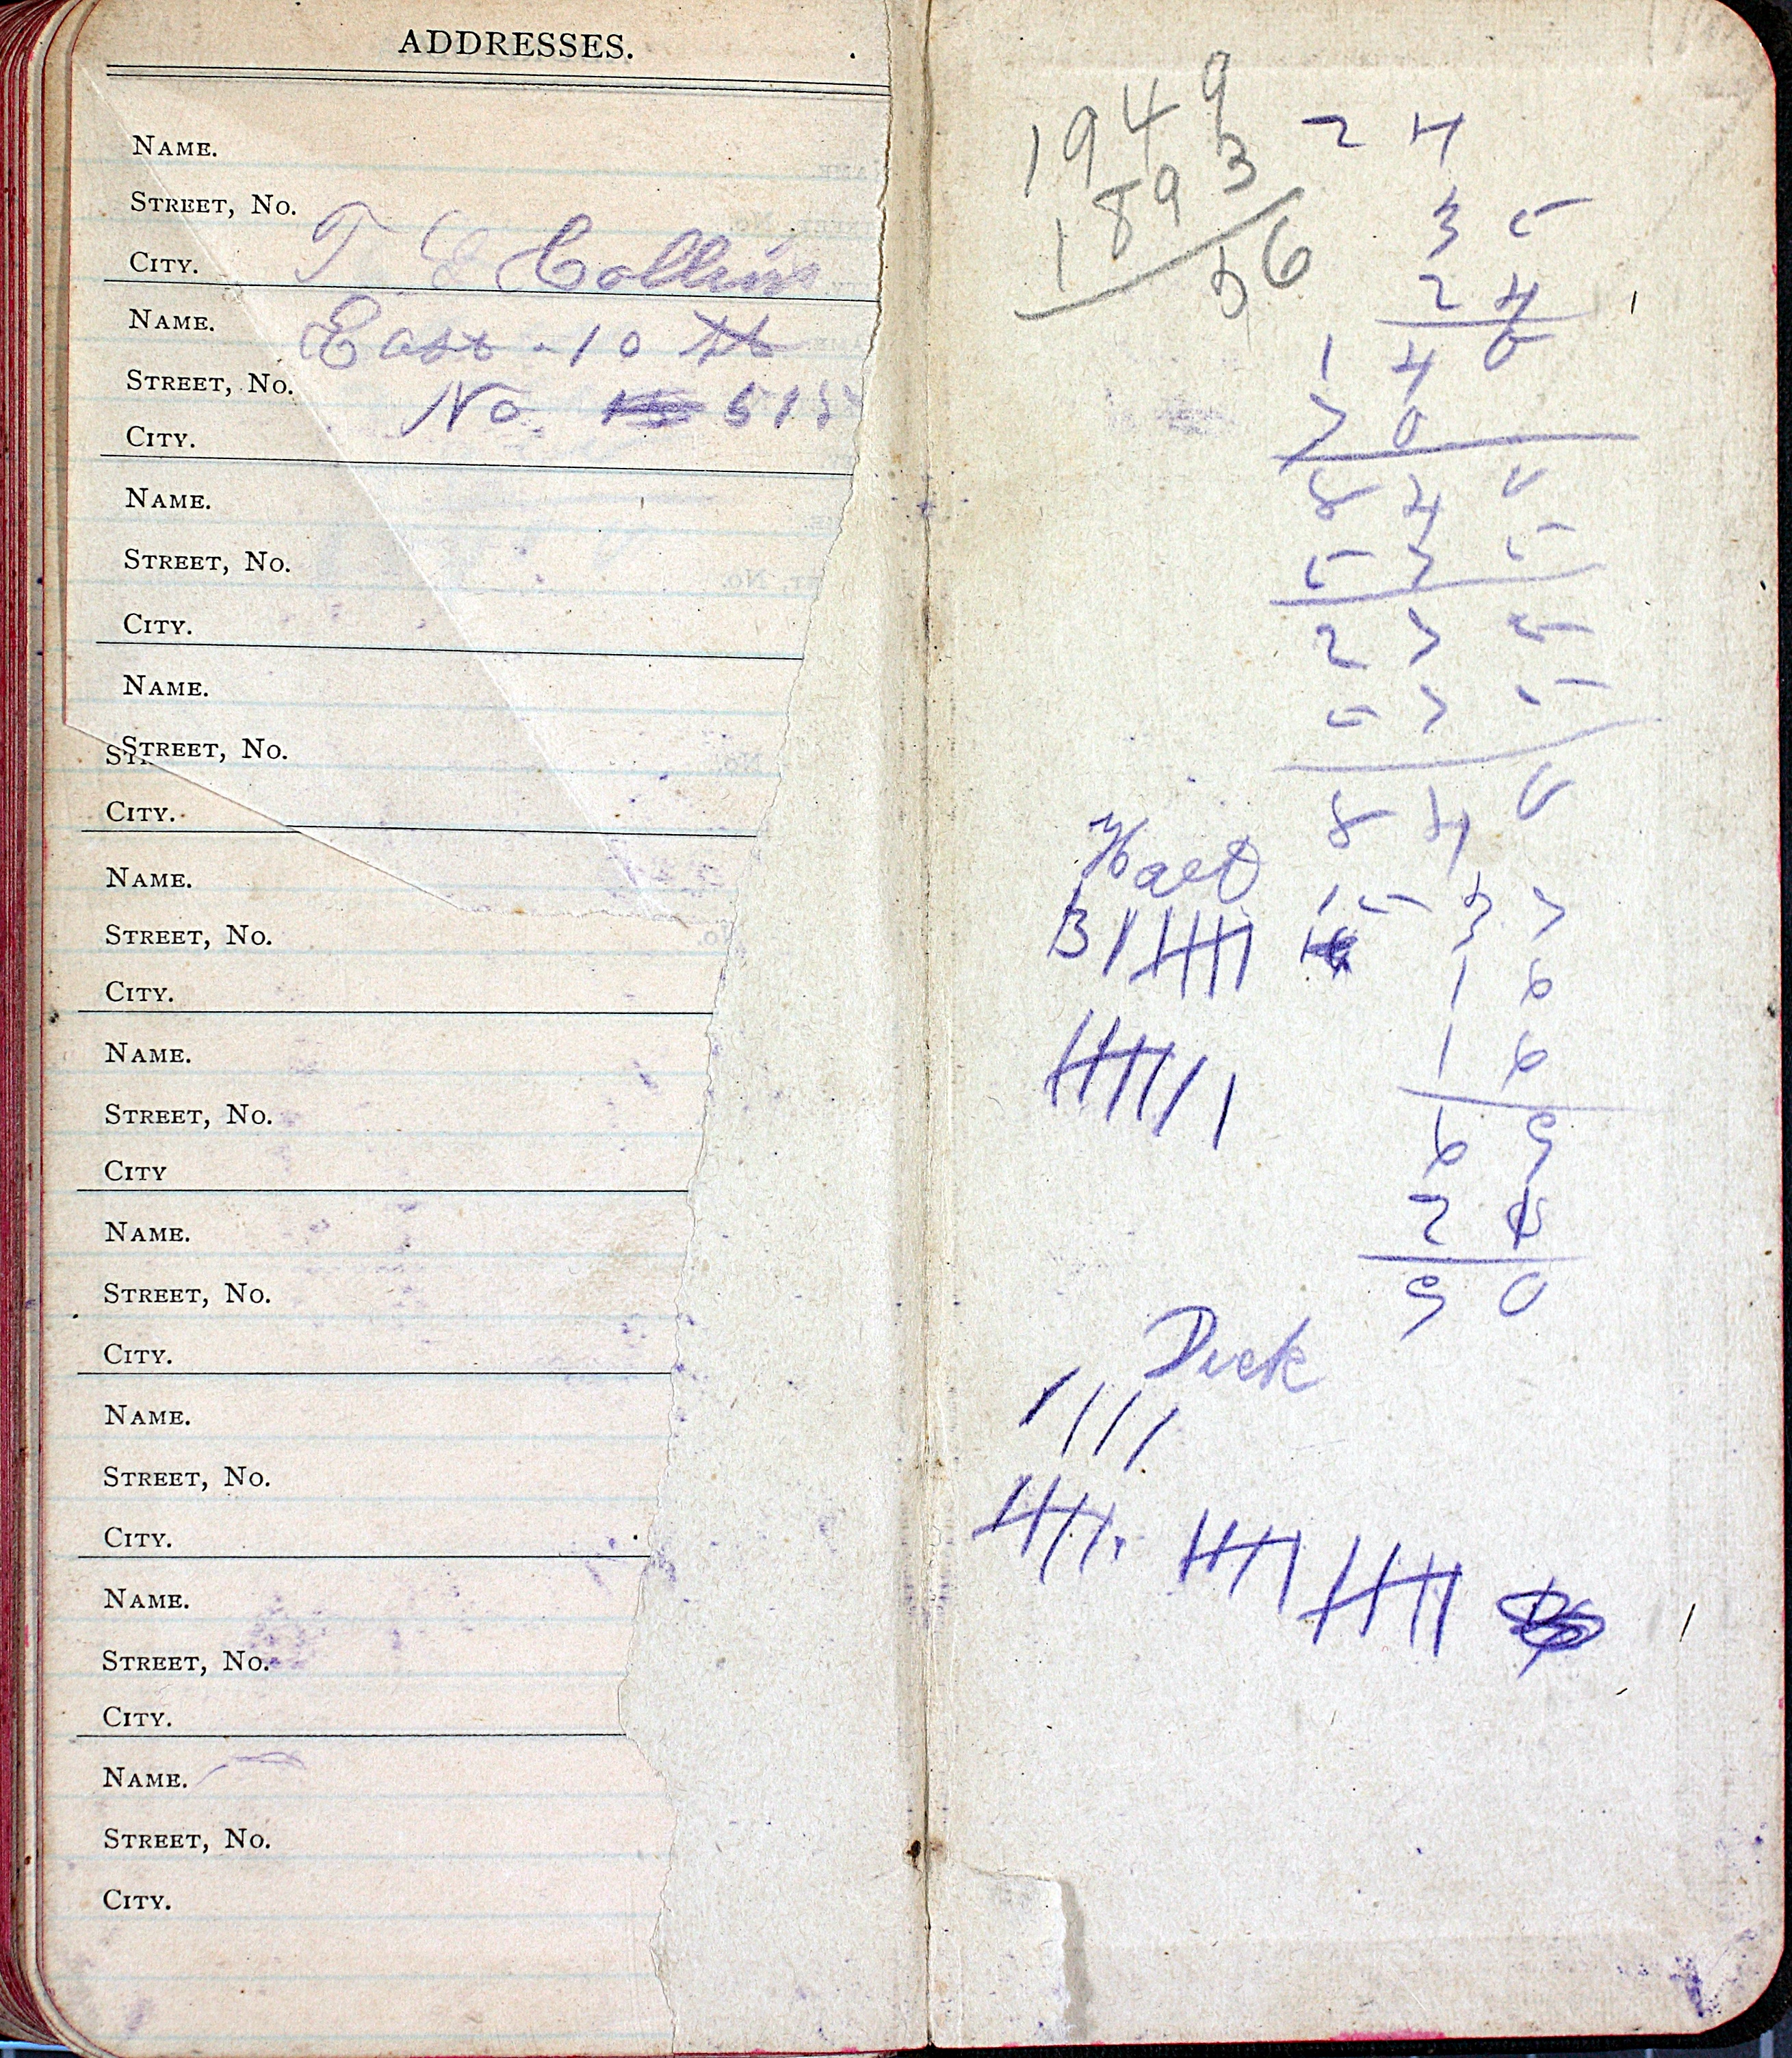 ADDRESSES.
NAME.
STREET, No.
T E Collins
CITY.
NAME.
East 10 th
STREET, No.
No 515
CITY.
NAME.
STREET, No.
CITY.
NAME.
STREET, No.
CITY.
NAME.
STREET, No.
CITY.
NAME.
STREET, No.
CITY
NAME.
STREET, No.
CITY.
NAME.
STREET, No.
CITY.
NAME.
STREET, No.
CITY.
NAME.
STREET, No.
CITY.
1949
1893
56
24
35
24
140
70
840
575
275
575
840
37
16
16
69
20
90
Dick